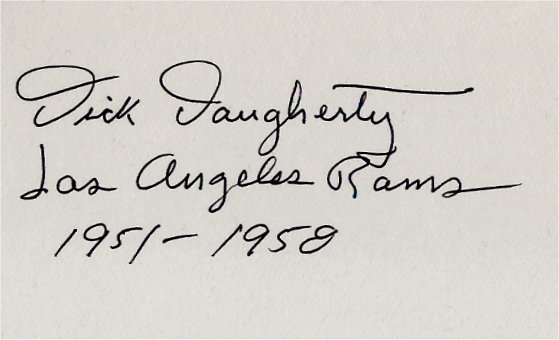 Dick Daugherty
Los Angeles Rams
1951-1958